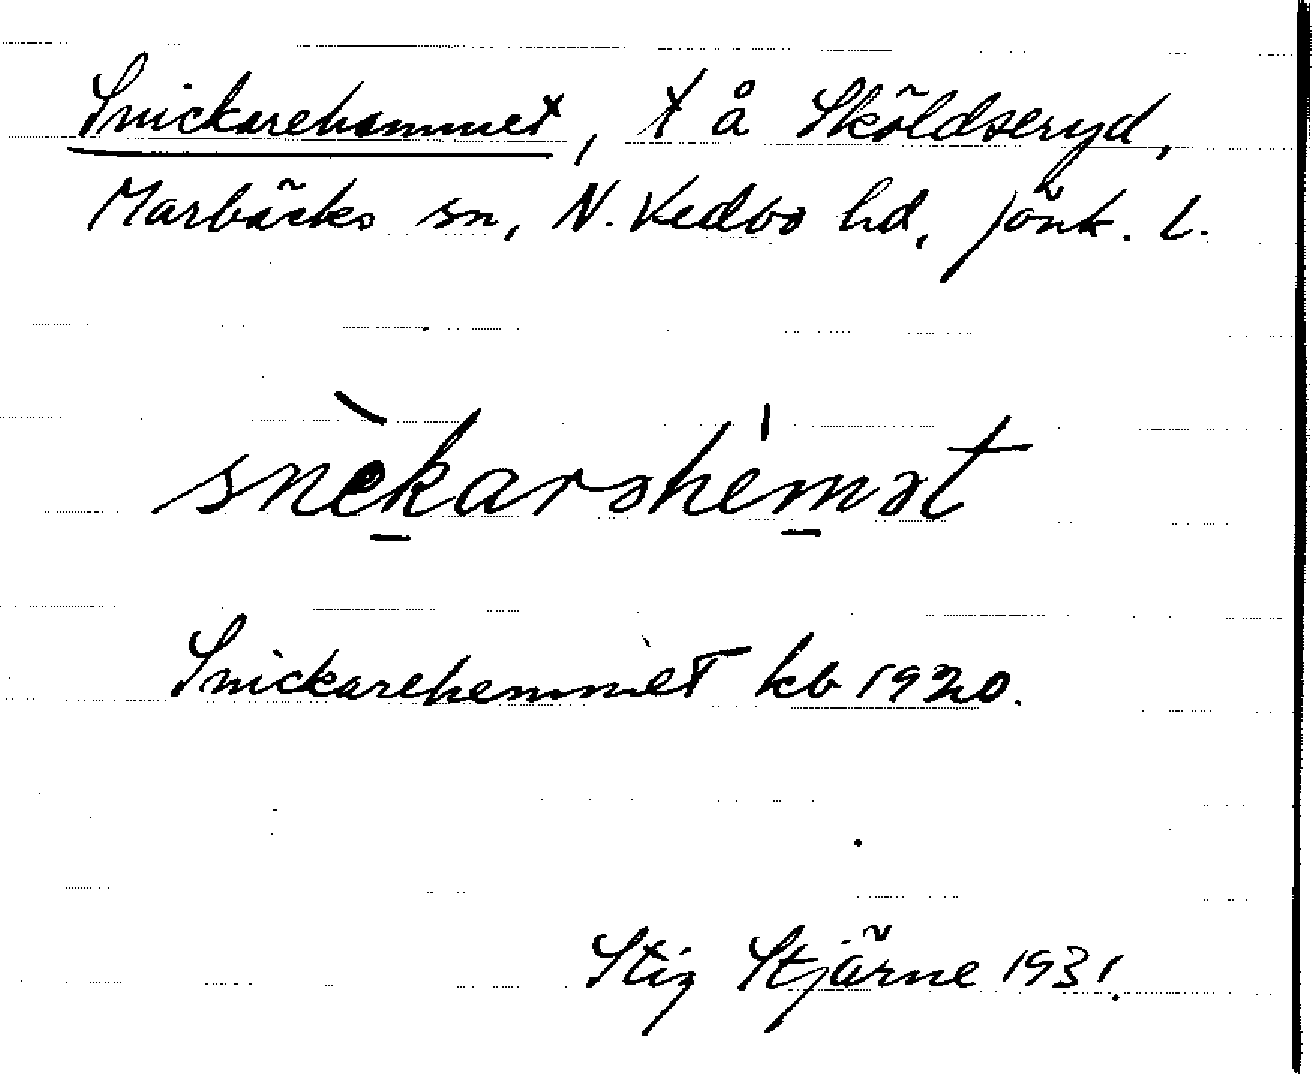 Snickarehemmet, t å Sköldseryd,
Marbäcks sn, N. Vedbo hd, Jönk. l.
snèkarəhémət
Snickarehemmet kb 1920.
Stig Stjärne 1931.